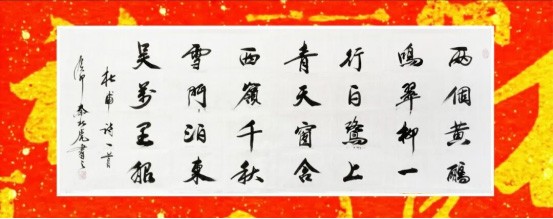 两個黄鸝
鳴翠柳一
行白鷺上
青天窗含
西嶺千秋
雪門泊東
吴萬里船
杜甫詩一首